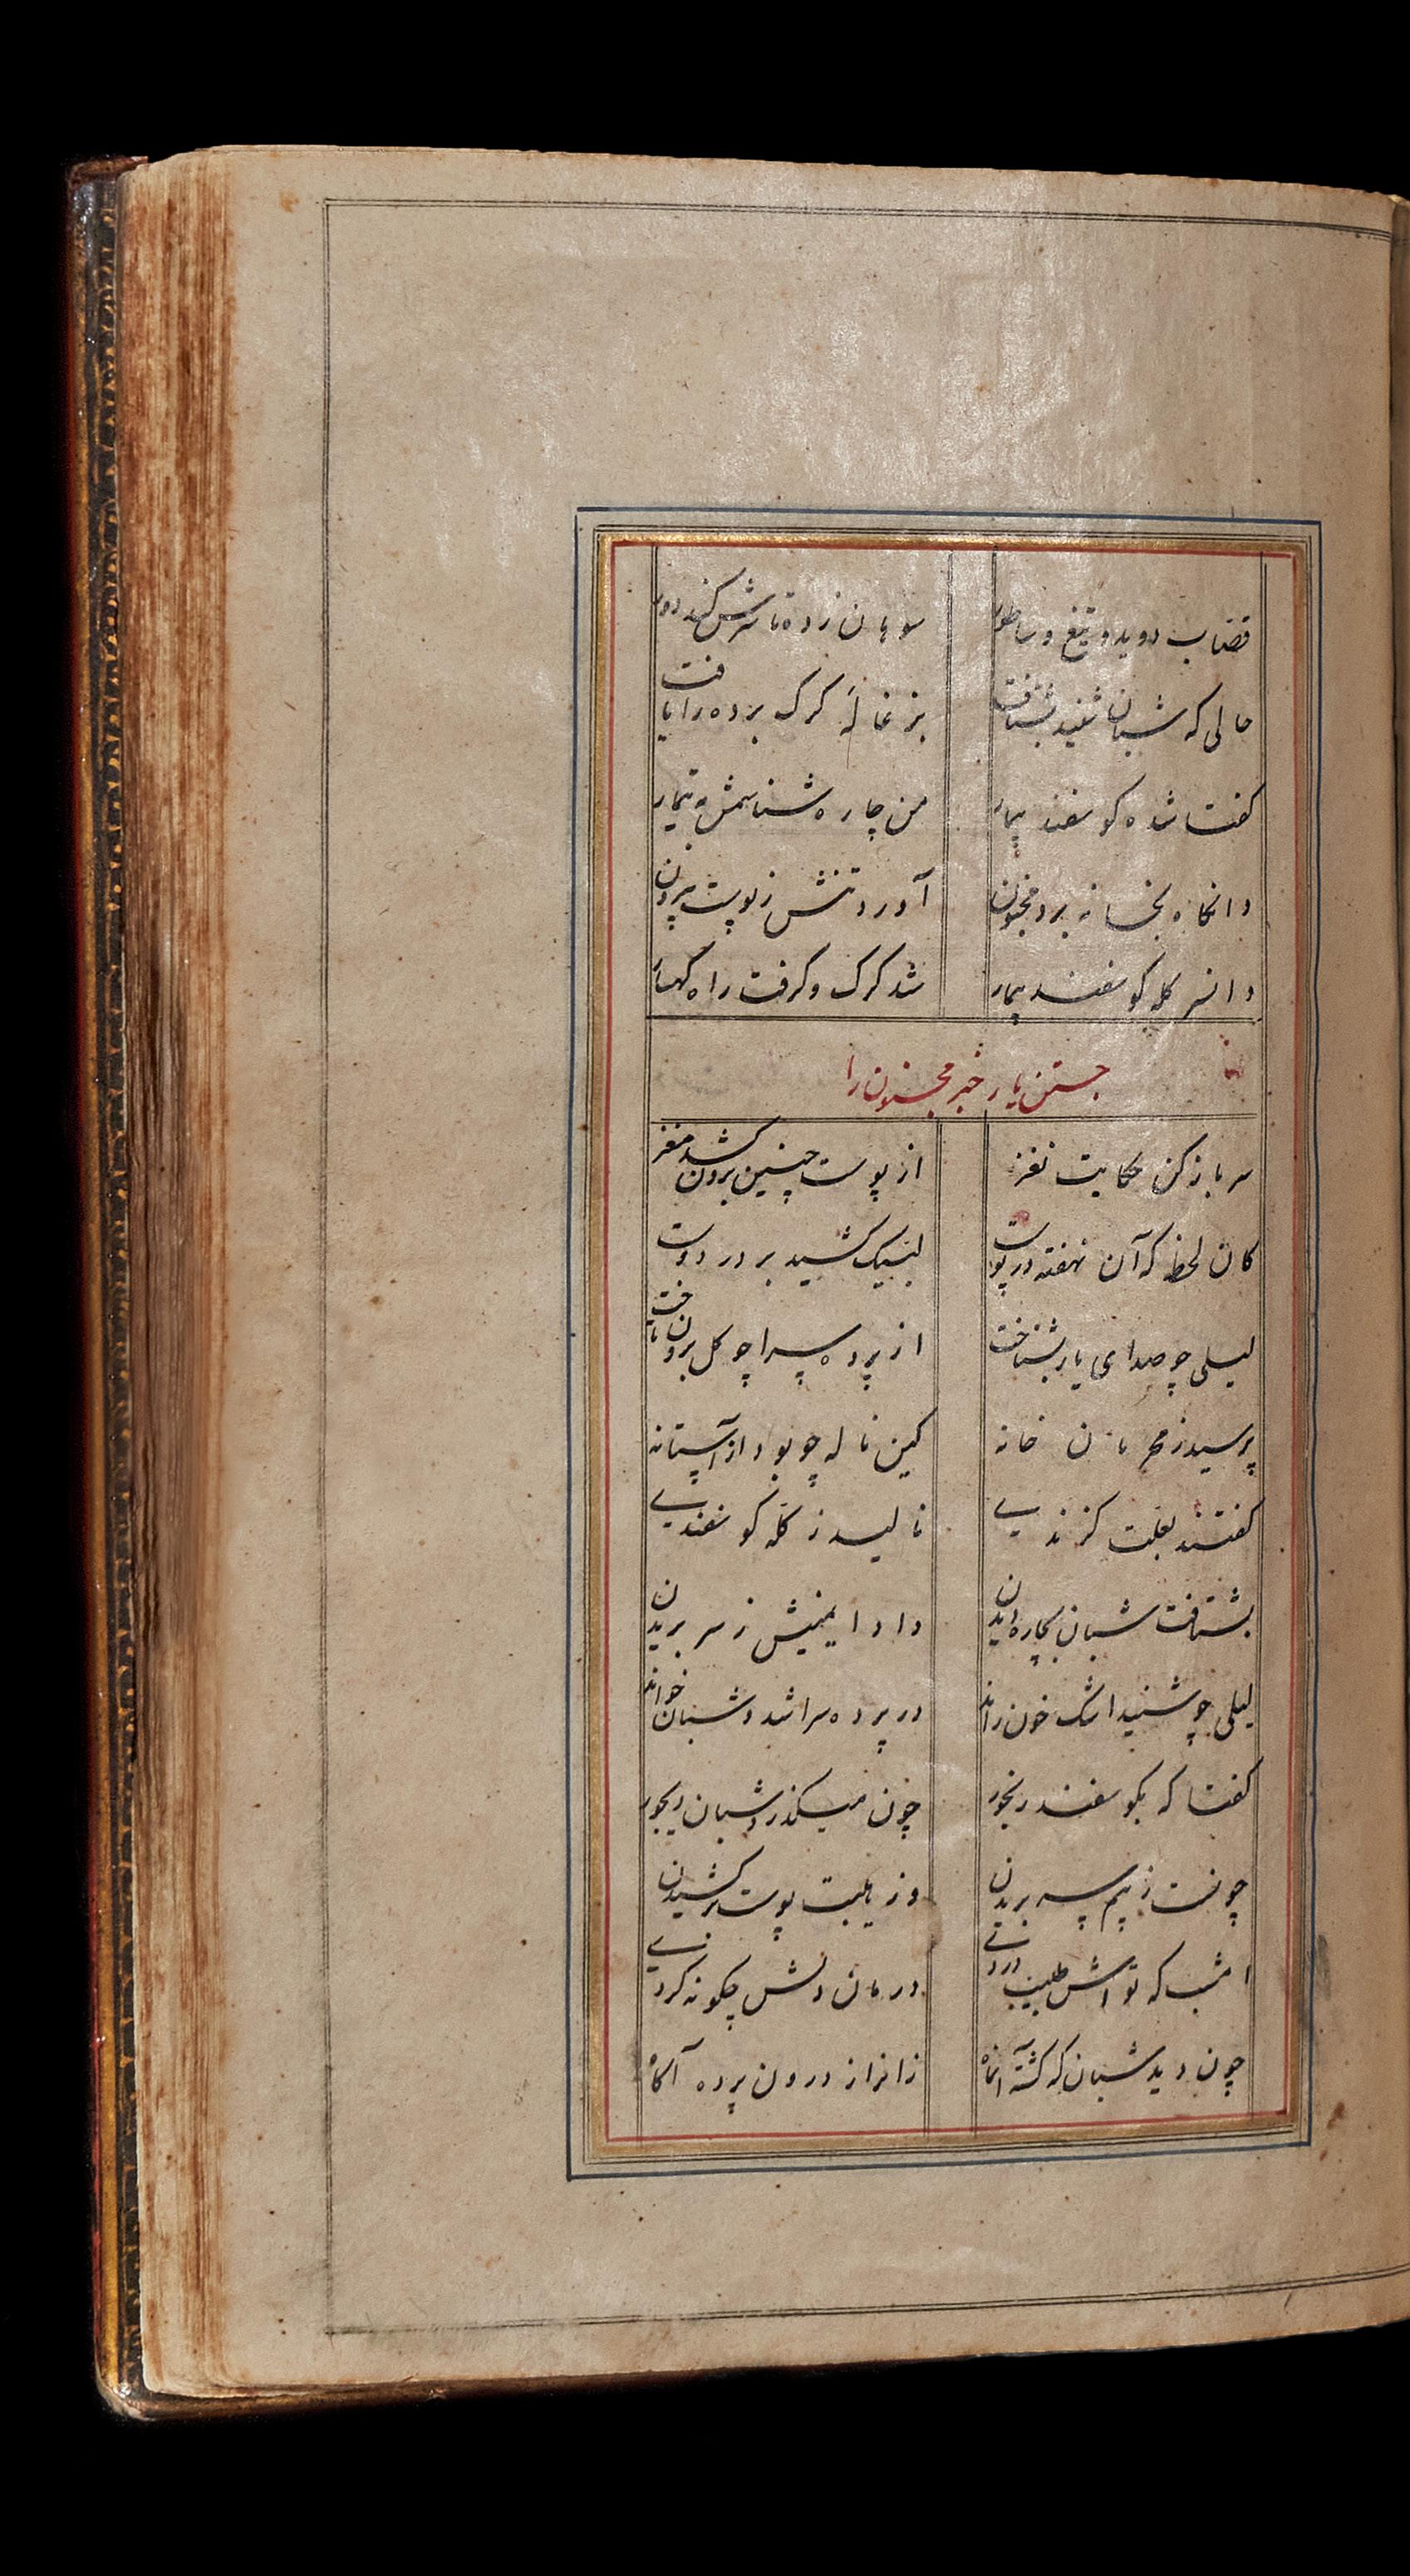 قصاب دوید و تیغ و ساطور سوهان زده تا سرش کند دور
حالی که شبان شنید بشتافت بزغاله کرک برده را یافت
کفتا شده کوسفند بیمار من چاره شناسمش به تیمار
وانکاه بخانه برد مجنون آورد تنش ز پوست بیرون
وان سر کله کوسفند بیمار شد کرک و کرفت راه کهسار
جستن یار خبر مجنون را
سر باز کن حکایت نغز از پوست چنین برون کشد مغز
کان لحظه که آن نهفته در پوست لبیک کشید بر در دوست
لیلی چو صدای یار بشناخت از پرده سرا چو کل برون تاخت
پرسید ز محرمان خانه کین ناله چو بود از آستانه
کفتند بعلت کزندی نالید ز کله کوسفندی
بشتافت شبان بچاره دیدن داد ایمنیش ز سر بریدن
لیلی چو شنید اشک خون راند در پرده سرا شد و شبان خواند
کفتا که بکو سفند رنجور چون میکذرد شبان دیجور
چونست ز بیم سر بریدن وز هیبت پوست برکشیدن
امشب که تواش طبیب دردی درمان دلش چکونه کردی
چون دید شبان که کشته آنماه زانراز درون پرده آکاه